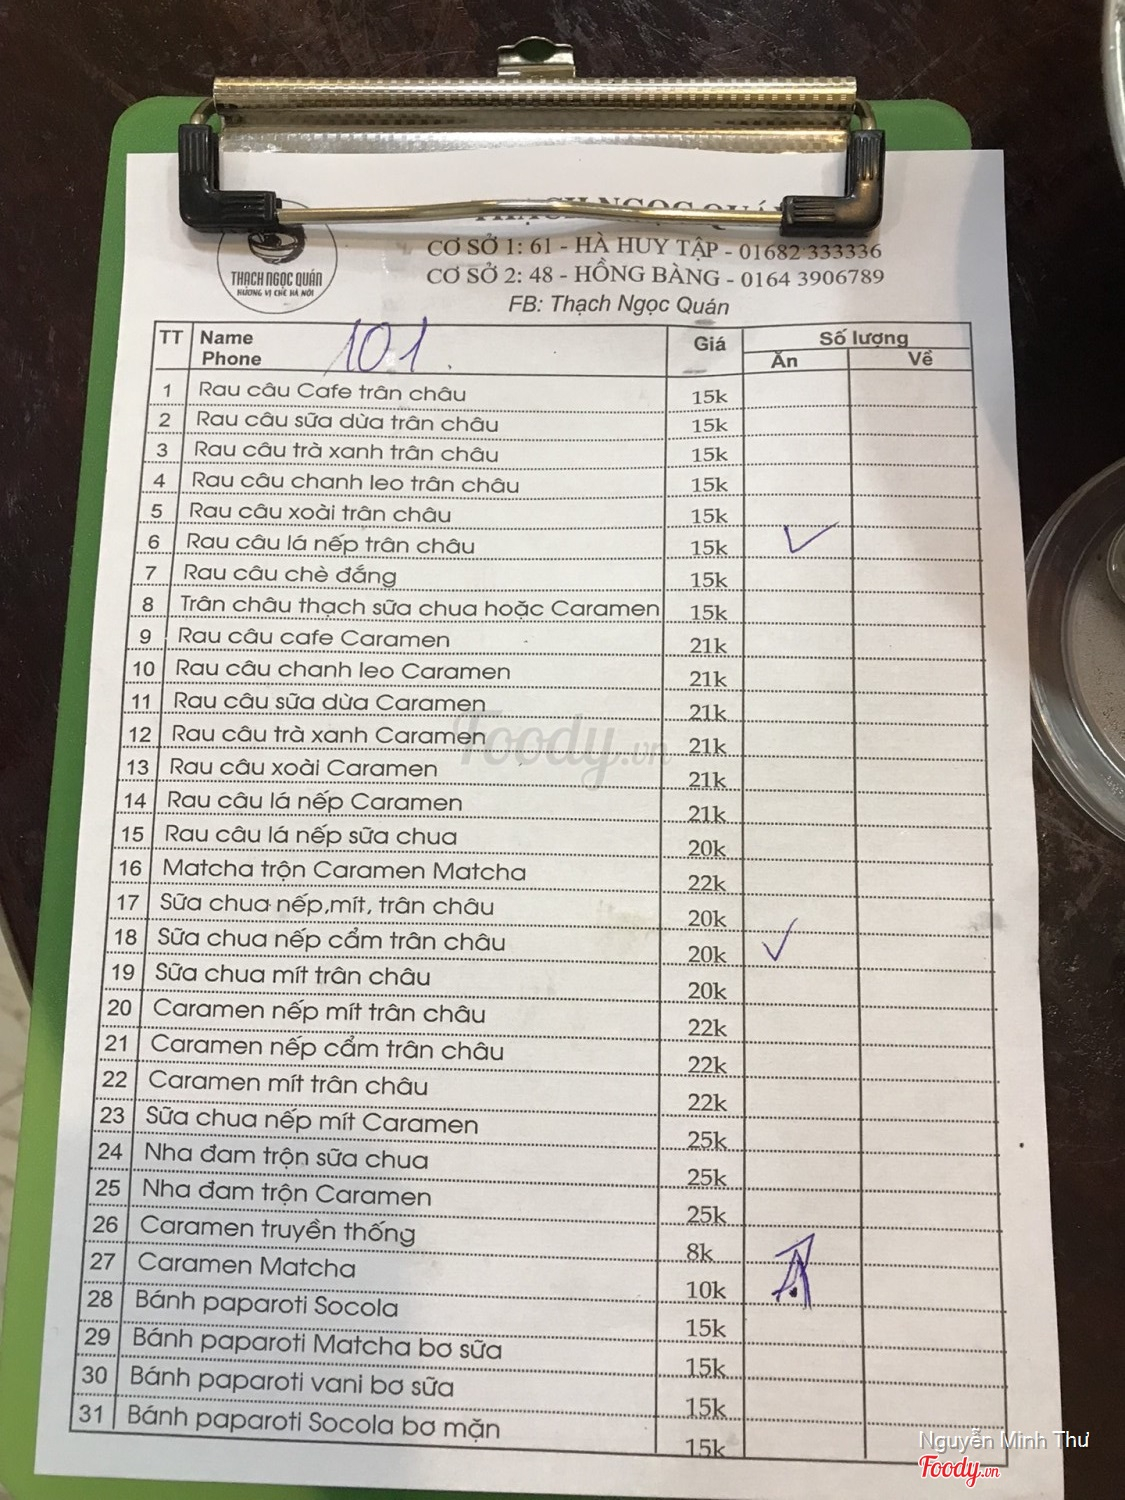 THẠCH NGỌC QUÁN
CƠ SỞ 1: 61 - HÀ HUY TẬP - 01682 333336
CƠ SỞ 2: 48 - HỒNG BÀNG - 0164 3906789
FB: Thạch Ngọc Quán
THẠCH NGỌC QUÁN
HƯƠNG VỊ CHÈ HÀ NỘI
TT Name Phone 101 Giá Số lượng
Ăn Về
1 Rau câu Cafe trân châu 15k
2 Rau câu sữa dừa trân châu 15k
3 Rau câu trà xanh trân châu 15k
4 Rau câu chanh leo trân châu 15k
5 Rau câu xoài trân châu 15k
6 Rau câu lá nếp trân châu 15k ✓
7 Rau câu chè đắng 15k
8 Trân châu thạch sữa chua hoặc Caramen 15k
9 Rau câu cafe Caramen 21k
10 Rau câu chanh leo Caramen 21k
11 Rau câu sữa dừa Caramen 21k
12 Rau câu trà xanh Caramen 21k
13 Rau câu xoài Caramen 21k
14 Rau câu lá nếp Caramen 21k
15 Rau câu lá nếp sữa chua 20k
16 Matcha trộn Caramen Matcha 22k
17 Sữa chua nếp,mít, trân châu 20k
18 Sữa chua nếp cẩm trân châu 20k ✓
19 Sữa chua mít trân châu 20k
20 Caramen nếp mít trân châu 22k
21 Caramen nếp cẩm trân châu 22k
22 Caramen mít trân châu 22k
23 Sữa chua nếp mít Caramen 25k
24 Nha đam trộn sữa chua 25k
25 Nha đam trộn Caramen 25k
26 Caramen truyền thống 8k
27 Caramen Matcha 10k
28 Bánh paparoti Socola 15k
29 Bánh paparoti Matcha bơ sữa 15k
30 Bánh paparoti vani bơ sữa 15k
31 Bánh paparoti Socola bơ mặn 15k
Foody.vn
Nguyễn Minh Thư
Foody.vn